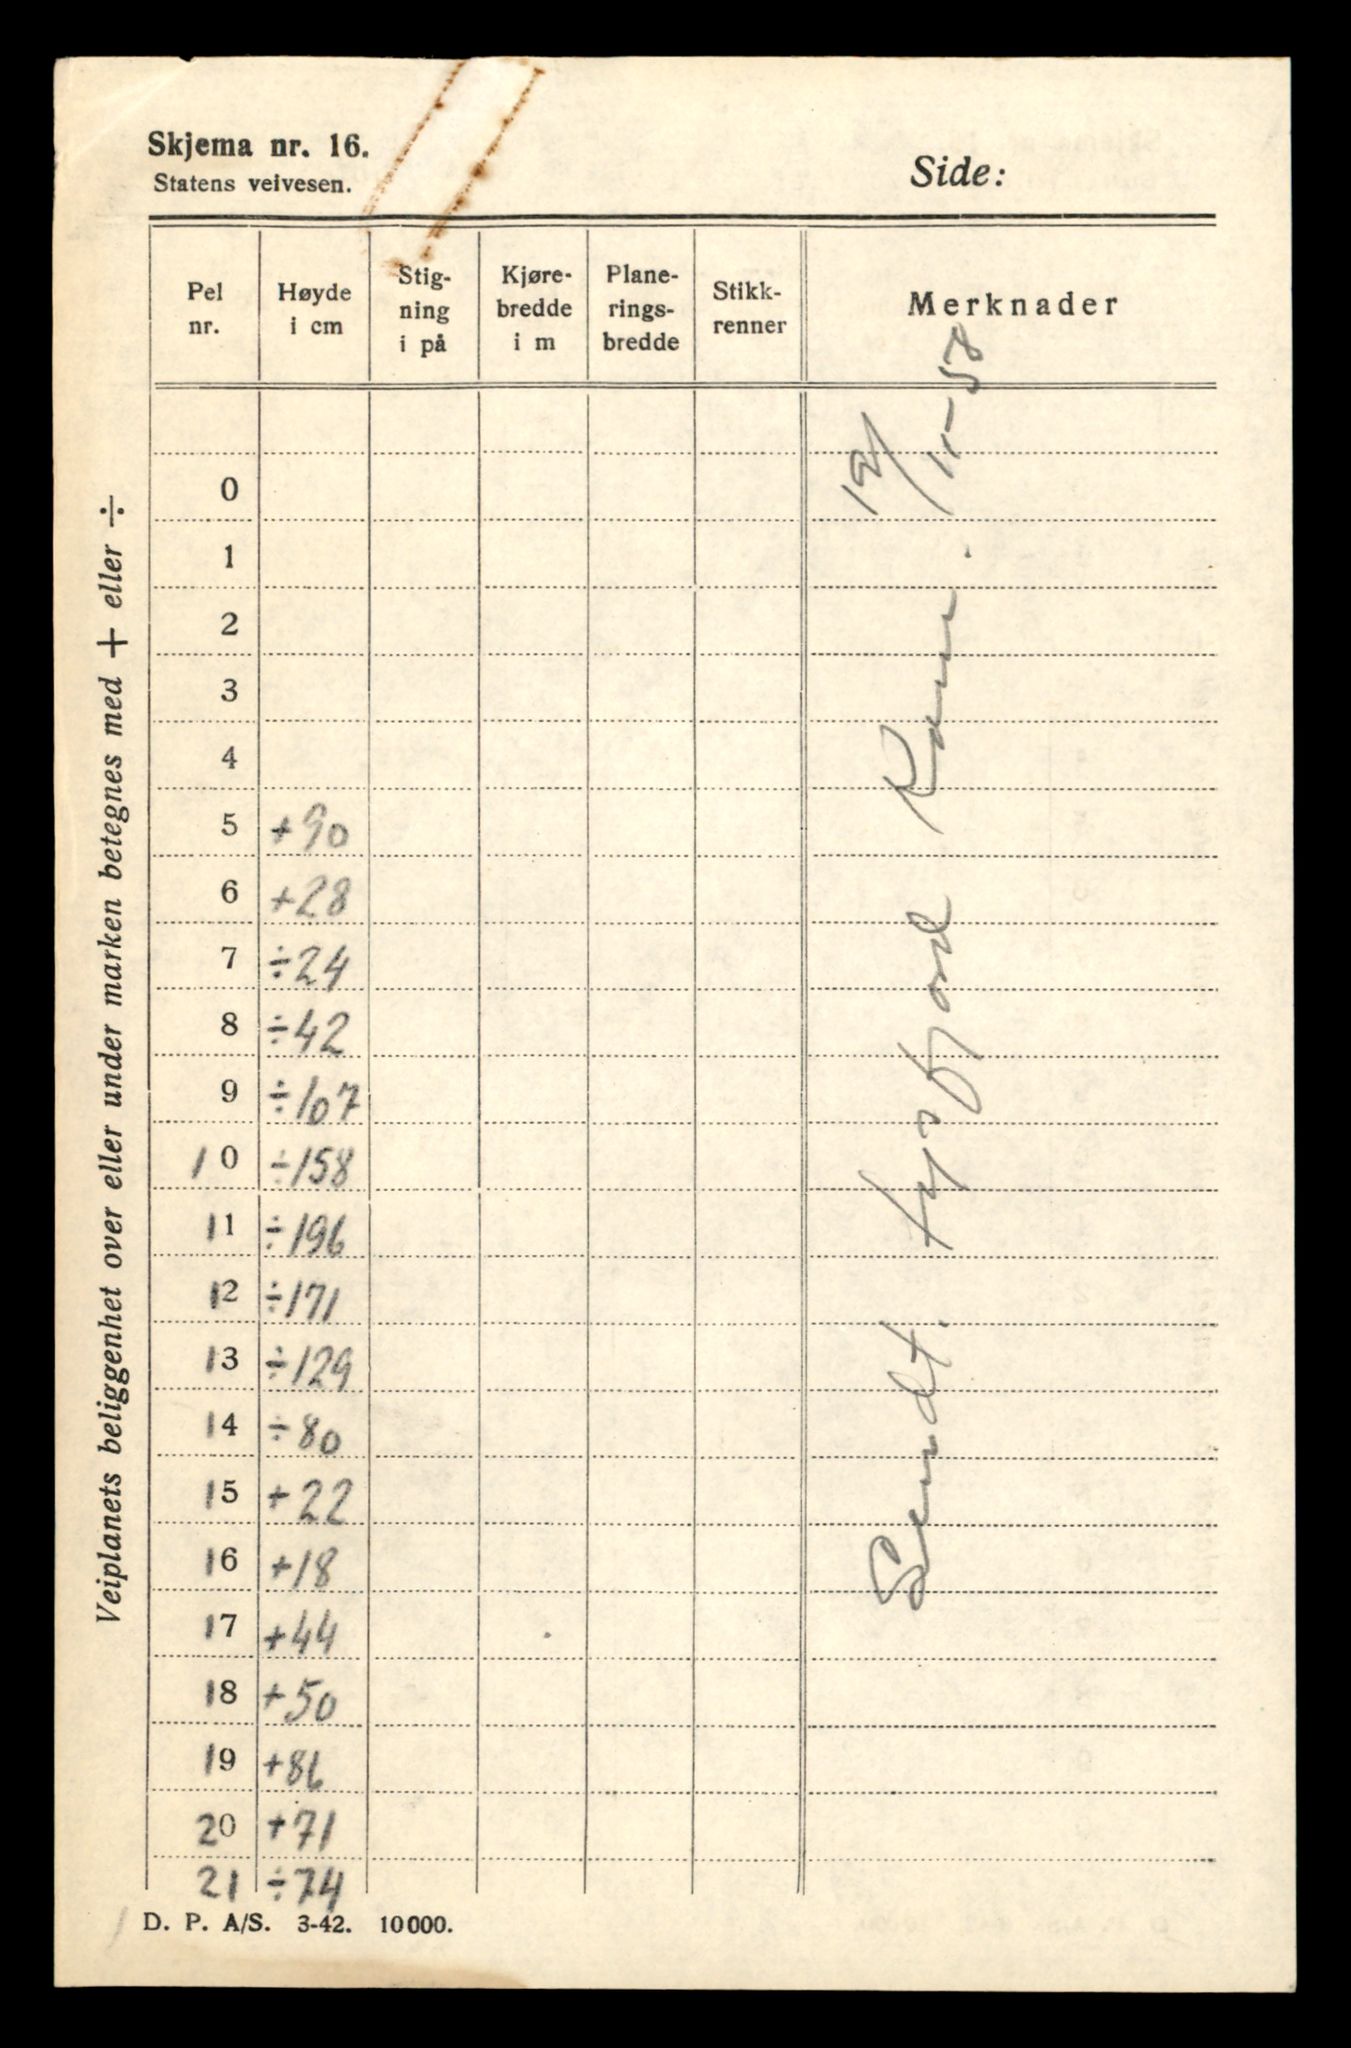 Skjema nr. 16.
Statens veivesen.
Side:
Pel nr. Høyde i cm Stig- ning i på Kjøre- bredde i m Plane- rings- bredde Stikk- renner Merknader
0
1
2
3
4
5 +90
6 +28
7 ÷24
8 ÷42
9 ÷107
10 ÷158
11 ÷196
12 ÷171
13 ÷129
14 ÷80
15 +22
16 +18
17 +44
18 +50
19 +86
20 +71
21 ÷74
Sendt.
19/11-58
Veiplanets beliggenhet over eller under marken betegnes med + eller ÷
D. P. A/S. 3-42. 10000.